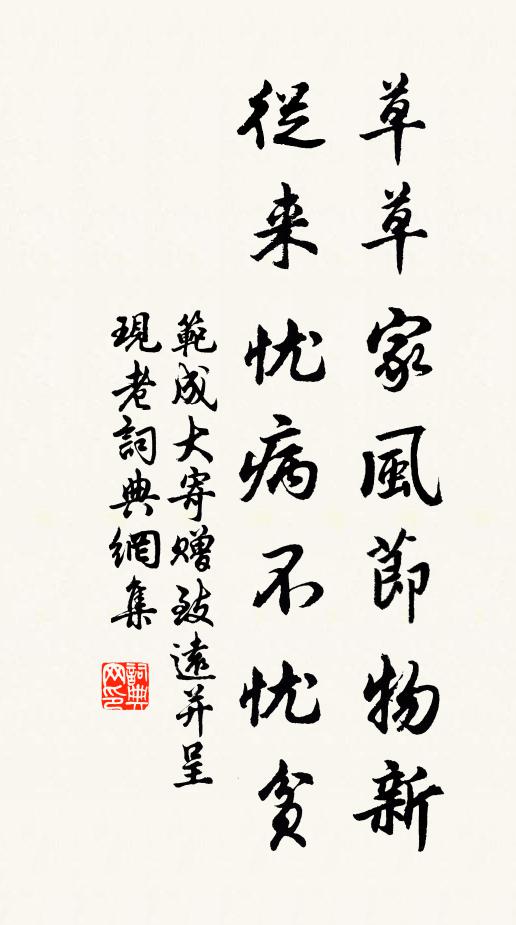 草草家風節物新
從来忧病不忧貧
範成大寄贈致遠并呈
現老詞典網集
詞典網印